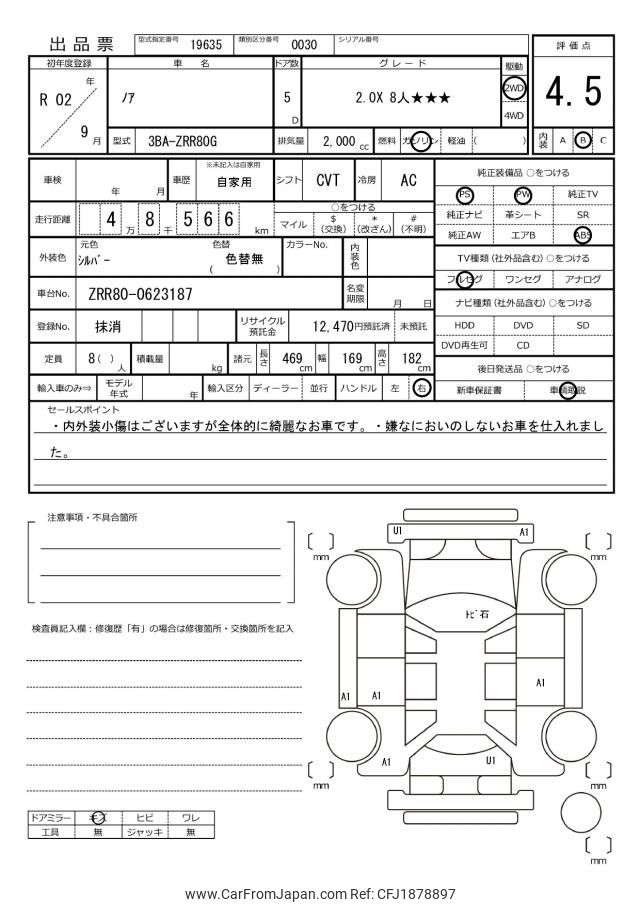 出品票 型式指定番号 19635 類別区分番号 0030 シリアル番号
評価点
初年度登録 車名 ドア数 グレード 駆動
R 02 年 9 月 ノア 5 D 2.0X 8人★★★ 2WD 4WD
4.5
型式 3BA-ZRR80G 排気量 2,000 cc 燃料 ガソリン 軽油 ( ) 内装 A B C
車検 年 月 車歴 ※未記入は自家用 自家用 シフト CVT 冷房 AC
純正装備品 ○をつける
PS PW 純正TV
純正ナビ 革シート SR
純正AW エアB ABS
走行距離 4 万 8 千 5 6 6 km
○をつける
マイル $ (交換) * (改ざん) # (不明)
外装色 元色 シルバー 色替 ( 色替無 ) カラーNo. 内装色
TV種類 (社外品含む) ○をつける
フルセグ ワンセグ アナログ
車台No. ZRR80-0623187 名変期限 月 日
ナビ種類 (社外品含む) ○をつける
登録No. 抹消 リサイクル預託金 12,470円預託済 未預託
HDD DVD SD
DVD再生可 CD
定員 8 ( ) 人 積載量 kg 諸元 長さ 469 cm 幅 169 cm 高さ 182 cm
後日発送品 ○をつける
輸入車のみ⇒ モデル年式 年 輸入区分 ディーラー 並行 ハンドル 左 右
新車保証書 車輌取説
セールスポイント
・内外装小傷はございますが全体的に綺麗なお車です。・嫌なにおいのしないお車を仕入れまし
た。
注意事項・不具合箇所
U1 A1
mm mm
トビ石
検査員記入欄：修復歴「有」の場合は修復箇所・交換箇所を記入
A1 A1 A1
A1 U1
mm mm
ドアミラー キズ ヒビ ワレ
工具 無 ジャッキ 無
mm
www.CarFromJapan.com Ref: CFJ1878897